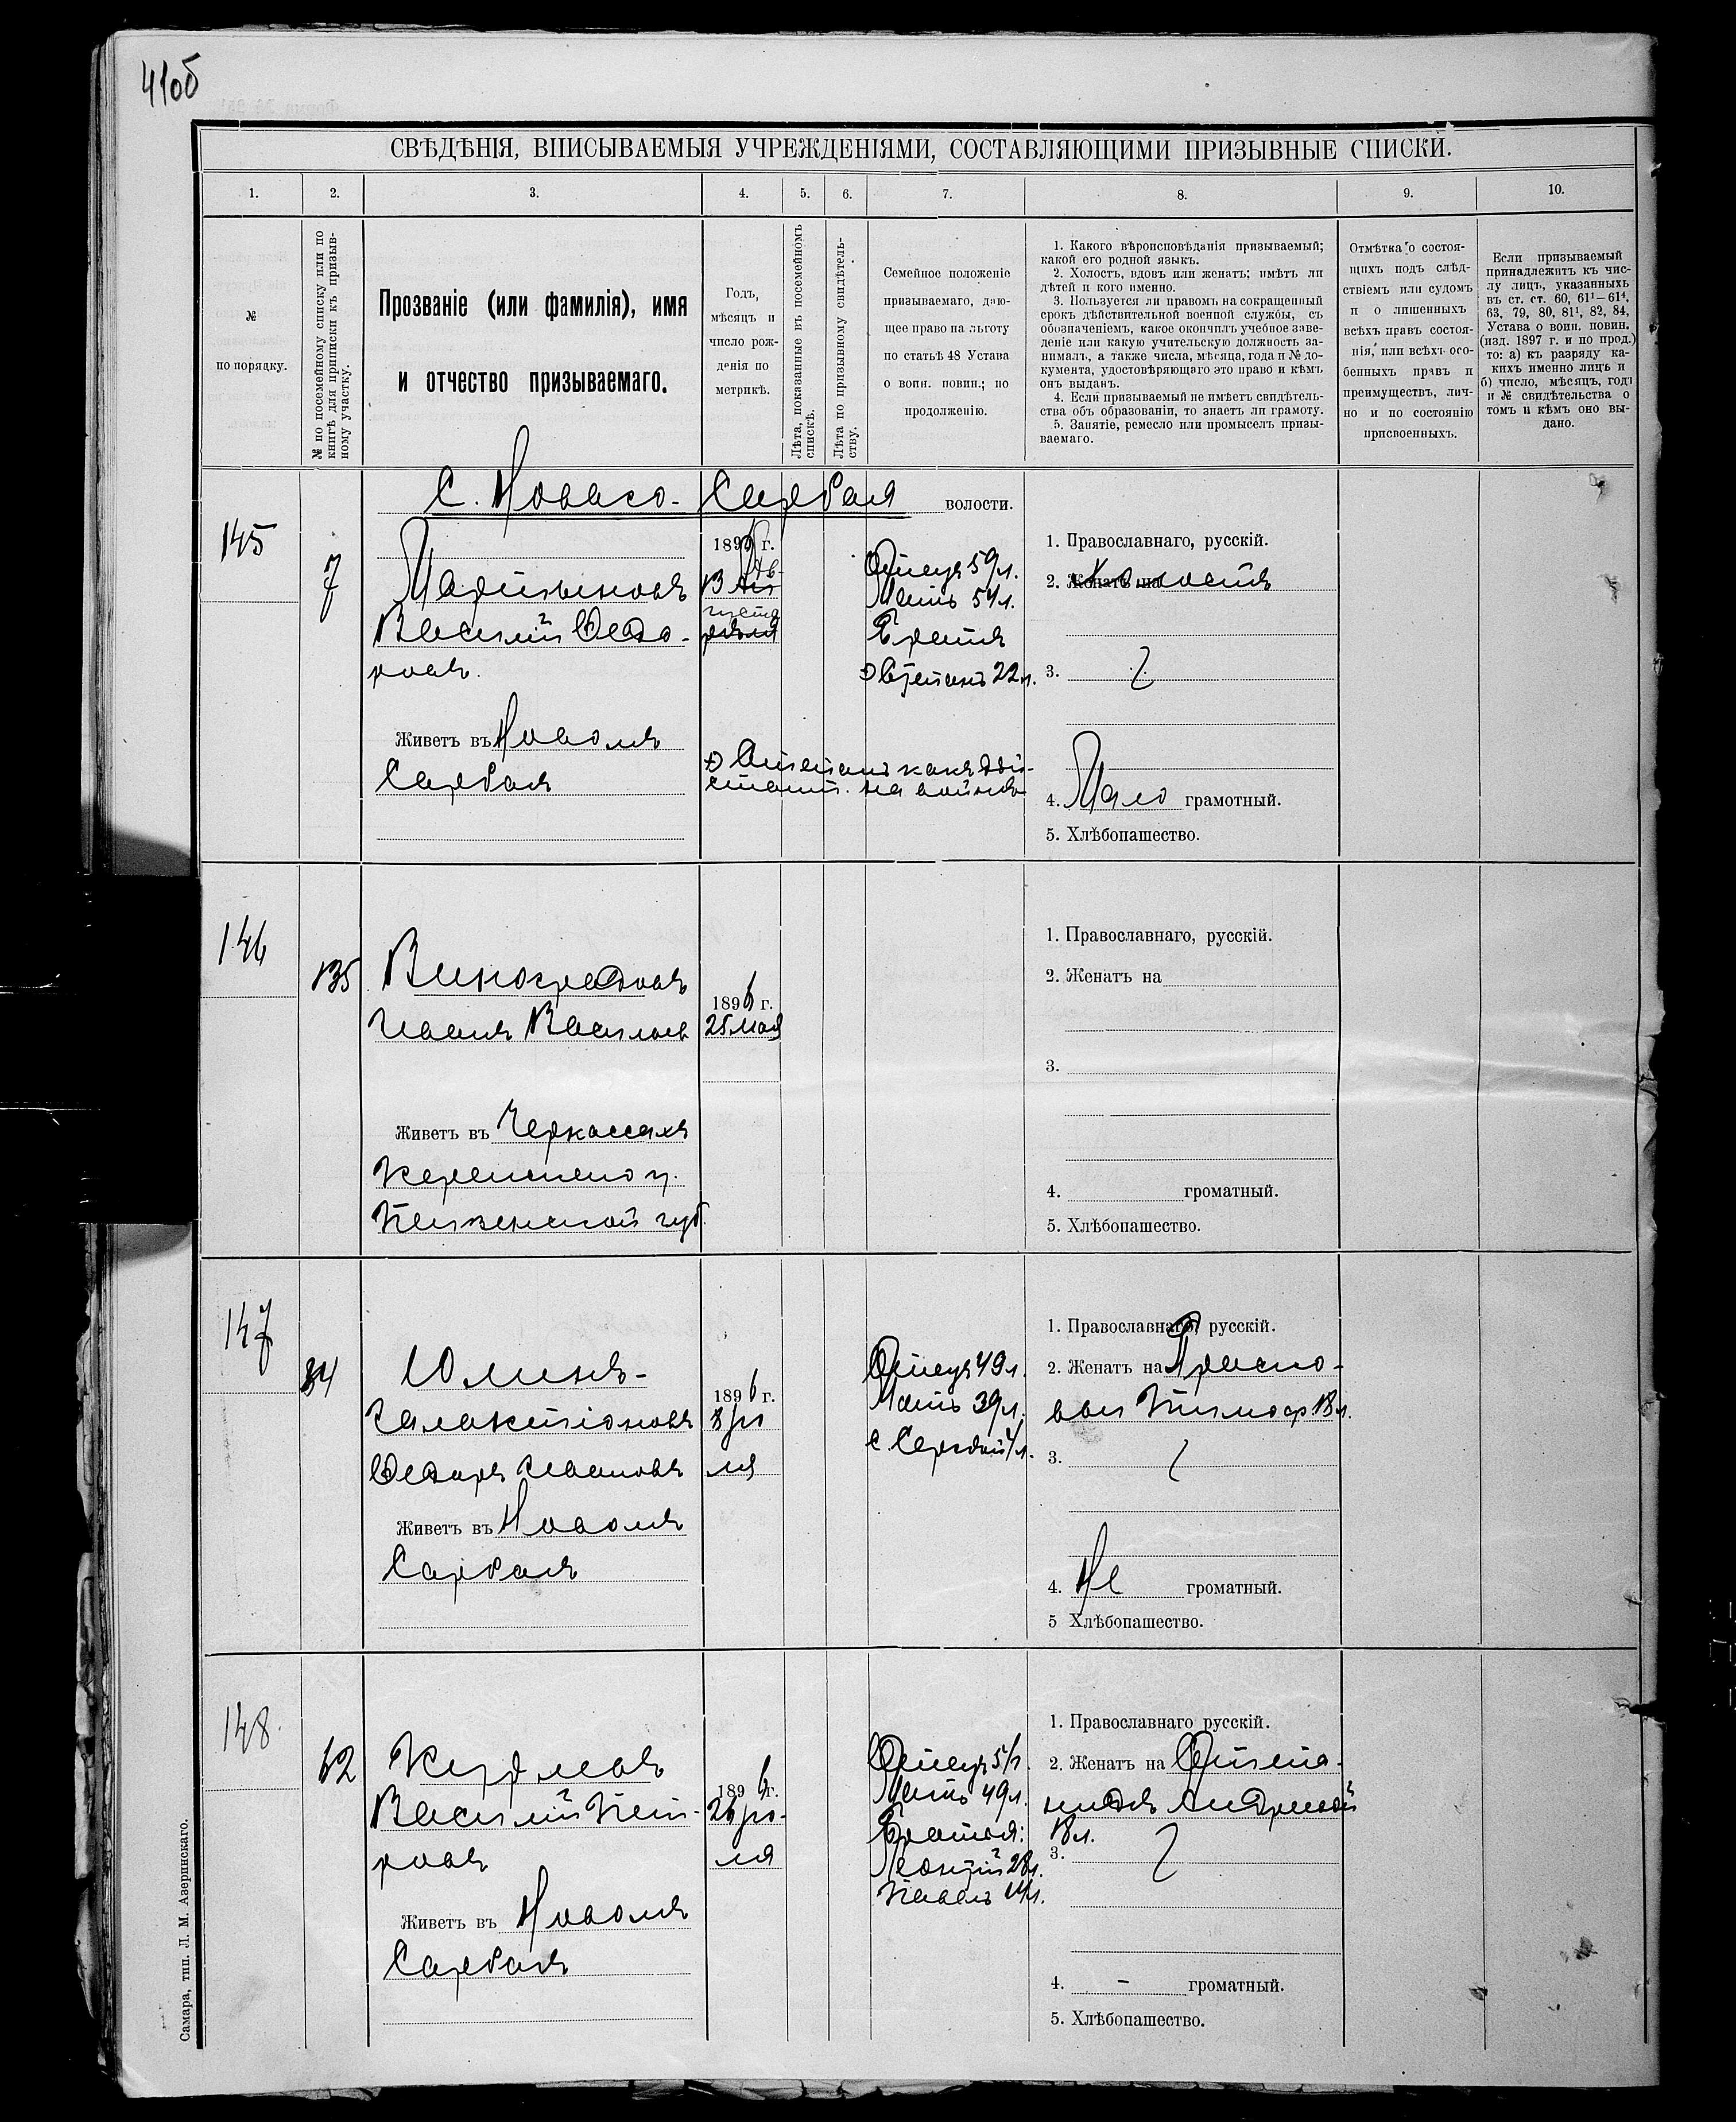 41об
СВѢДѢНІЯ, ВПИСЫВАЕМЫЯ УЧРЕЖДЕНІЯМИ, СОСТАВЛЯЮЩИМИ ПРИЗЫВНЫЕ СПИСКИ.
1. 2. 3. 4. 5. 6. 7. 8. 9. 10.
№
по порядку.
№ по посемейному списку или по
книгѣ для приписки къ призыв-
ному участку.
Прозваніе (или фамилія), имя
и отчество призываемаго.
Годъ,
мѣсяцъ и
число рож-
денія по
метрикѣ.
Лѣта, показанные въ посемейномъ
спискѣ.
Лѣта по призывному свидѣтель-
ству.
Семейное положеніе
призываемаго, даю-
щее право на льготу
по статьѣ 48 Устава
о воин. повин.; по
продолженію.
1. Какого вѣроисповѣданія призываемый;
какой его родной языкъ.
2. Холостъ, вдовъ или женатъ; имѣтъ ли
дѣтей и кого именно.
3. Пользуется ли правомъ на сокращенный
срокъ дѣйствительной военной службы, съ
обозначеніемъ, какое окончилъ учебное заве-
деніе или какую учительскую должность за-
нималъ, а также числа, мѣсяца, года и № до-
кумента, удостовѣряющаго это право и кѣмъ
онъ выданъ.
4. Если призываемый не имѣетъ свидѣтель-
ства объ образованіи, то знаетъ ли грамоту.
5. Занятіе, ремесло или промыселъ призы-
ваемаго.
Отмѣтка о состоя-
щихъ подъ слѣд-
ствіемъ или судомъ
и о лишенныхъ
всѣхъ правъ состоя-
нія, или всѣхъ осо-
бенныхъ правъ и
преимуществъ, лич-
но и по состоянію
присвоенныхъ.
Если призываемый
принадлежитъ къ чис-
лу лицъ, указанныхъ
въ ст. ст. 60, 61¹—61⁴,
63, 79, 80, 81¹, 82, 84,
Устава о воин. повин.
(изд. 1897 г. и по прод.)
то: а) къ разряду ка-
кихъ именно лицъ и
б) число, мѣсяцъ, годъ
и № свидѣтельства о
томъ и кѣмъ оно вы-
дано.
С. Новаго-Сарбая волости.
145
7
Мартыновъ
Василій Ѳедо-
ровъ.
Живетъ въ Новомъ
Сарбаѣ
1896 г.
Ав-
густа
Отецъ 59 л.
Мать 54 л.
Братъ
Степанъ 22 л.
Степанъ какъ
на войнѣ
1. Православнаго, русскій.
2. Женатъ на холостъ
3.
4. Мало грамотный.
5. Хлѣбопашество.
146
135
Виноградовъ
Иванъ Васильев
Живетъ въ Черкассахъ
Керенскаго у.
Пензенской губ.
1896 г.
25 мая
1. Православнаго, русскій.
2. Женатъ на
3.
4. громатный.
5. Хлѣбопашество.
147
84
Юминъ-
Галактіоновъ
Ѳедоръ Ивановъ
Живетъ въ Новомъ
Сарбаѣ
1896 г.
8 Ію
ля
Отецъ 49 л.
Мать 39 л.
с. Сергѣй 4 л.
1. Православнаго, русскій.
2. Женатъ на Праско-
вьи Тимоф 18 л.
3.
4. Не громатный.
5 Хлѣбопашество.
148.
62
Василій Пет-
ровъ
Живетъ въ Новомъ
Сарбаѣ
1896 г.
26 Ію-
ля
Отецъ 51 г.
Мать 49 л.
Братья:
Леонтій 28 л.
Павелъ 14 л.
1. Православнаго русскій.
2. Женатъ на Степа-
нидѣ Андреевой
18 л.
3.
4. – громатный.
5. Хлѣбопашество.
Самара, тип. Л. М. Азеринскаго.